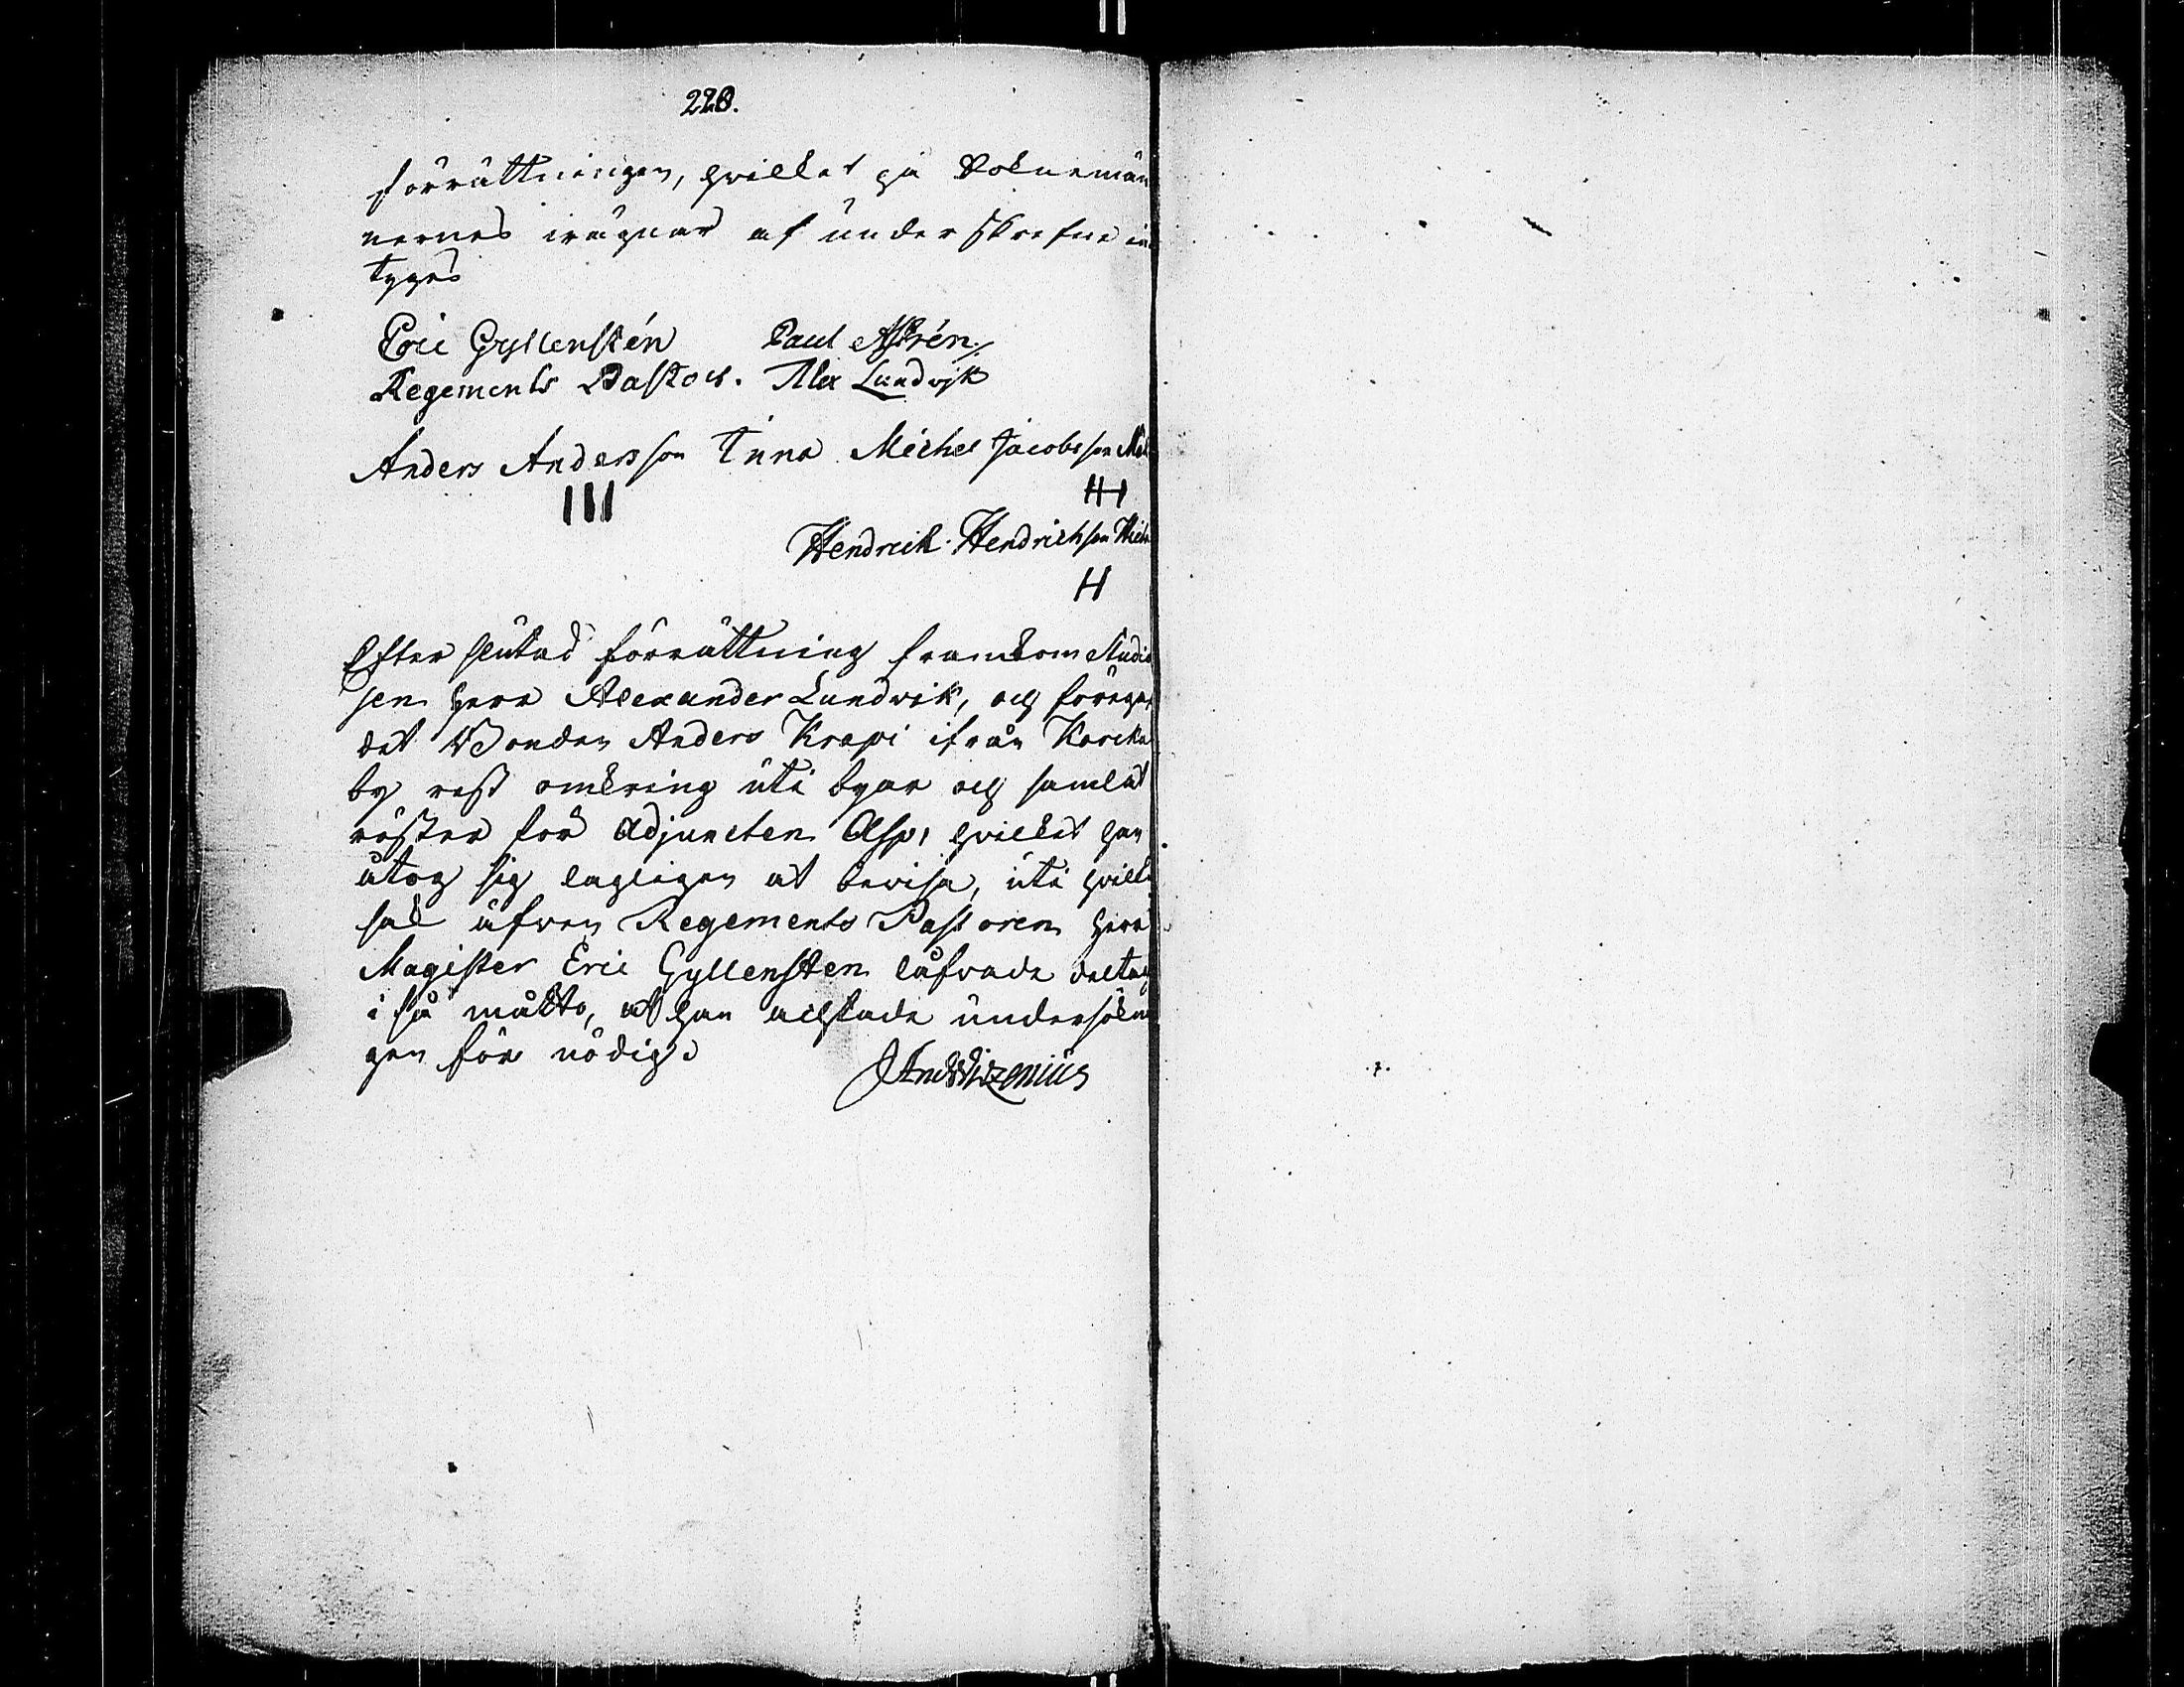 220.
förrättningen, hwilket på Soknemän
nernes wägnar af underskrefne in
tyges
Eric Gyllenstén Paul Astrén
Regements Pastor. Alex Lundwjk
Anders Andersson Inna Michel Jacobsson
III
Hendrich Hendrichson
H
Efter slutad förrättning framkom Studio
sen herr Alexander Lundwik, och föregaf
det Bonden Anders Krapi ifrån
by rest omkring uti byar och samlat
röster för Adjuncten Asp, hwilket han
åtog sig lagligen at bewisa, uti hwilke
fal äfwen Regements Pastoren herr
Magister Eric Gyllensten låfwade deltag
i så måtto, at han achtade undersökn
gen för nödig.